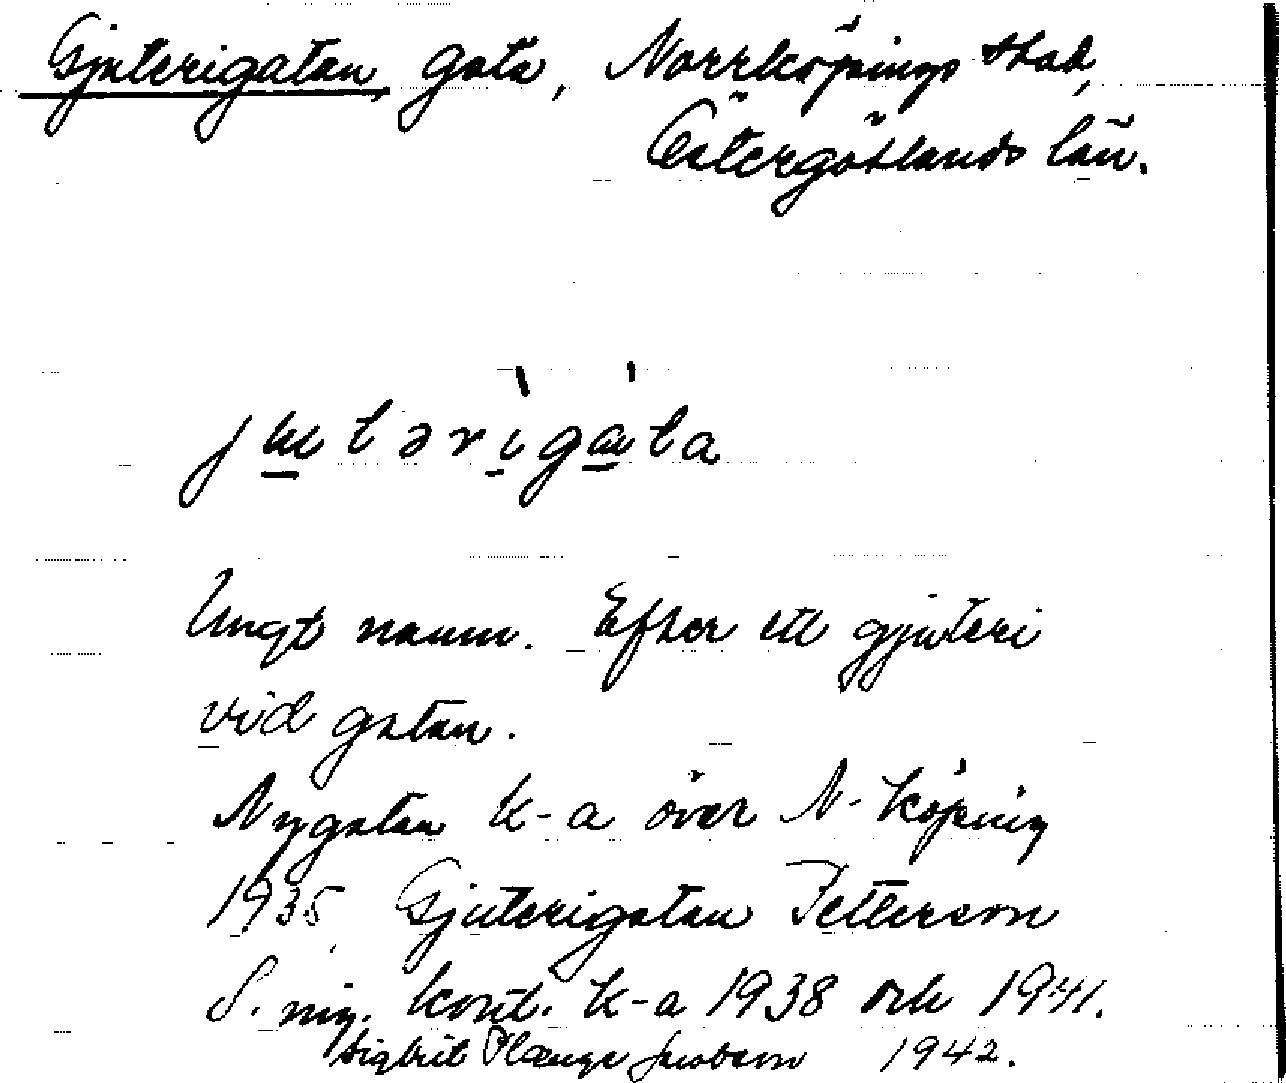 Gjuterigatan, gata, Norrköpings stad,
Östergötlands län.
jutərigata
Ungt namn. Efter ett gjuteri
vid gatan.
Nygatan k-a över N-köping
1935, Gjuterigatan Petterson
S. ing. kont. k-a 1938 och 1941.
Sigbrit Plænge Jacobson 1942.